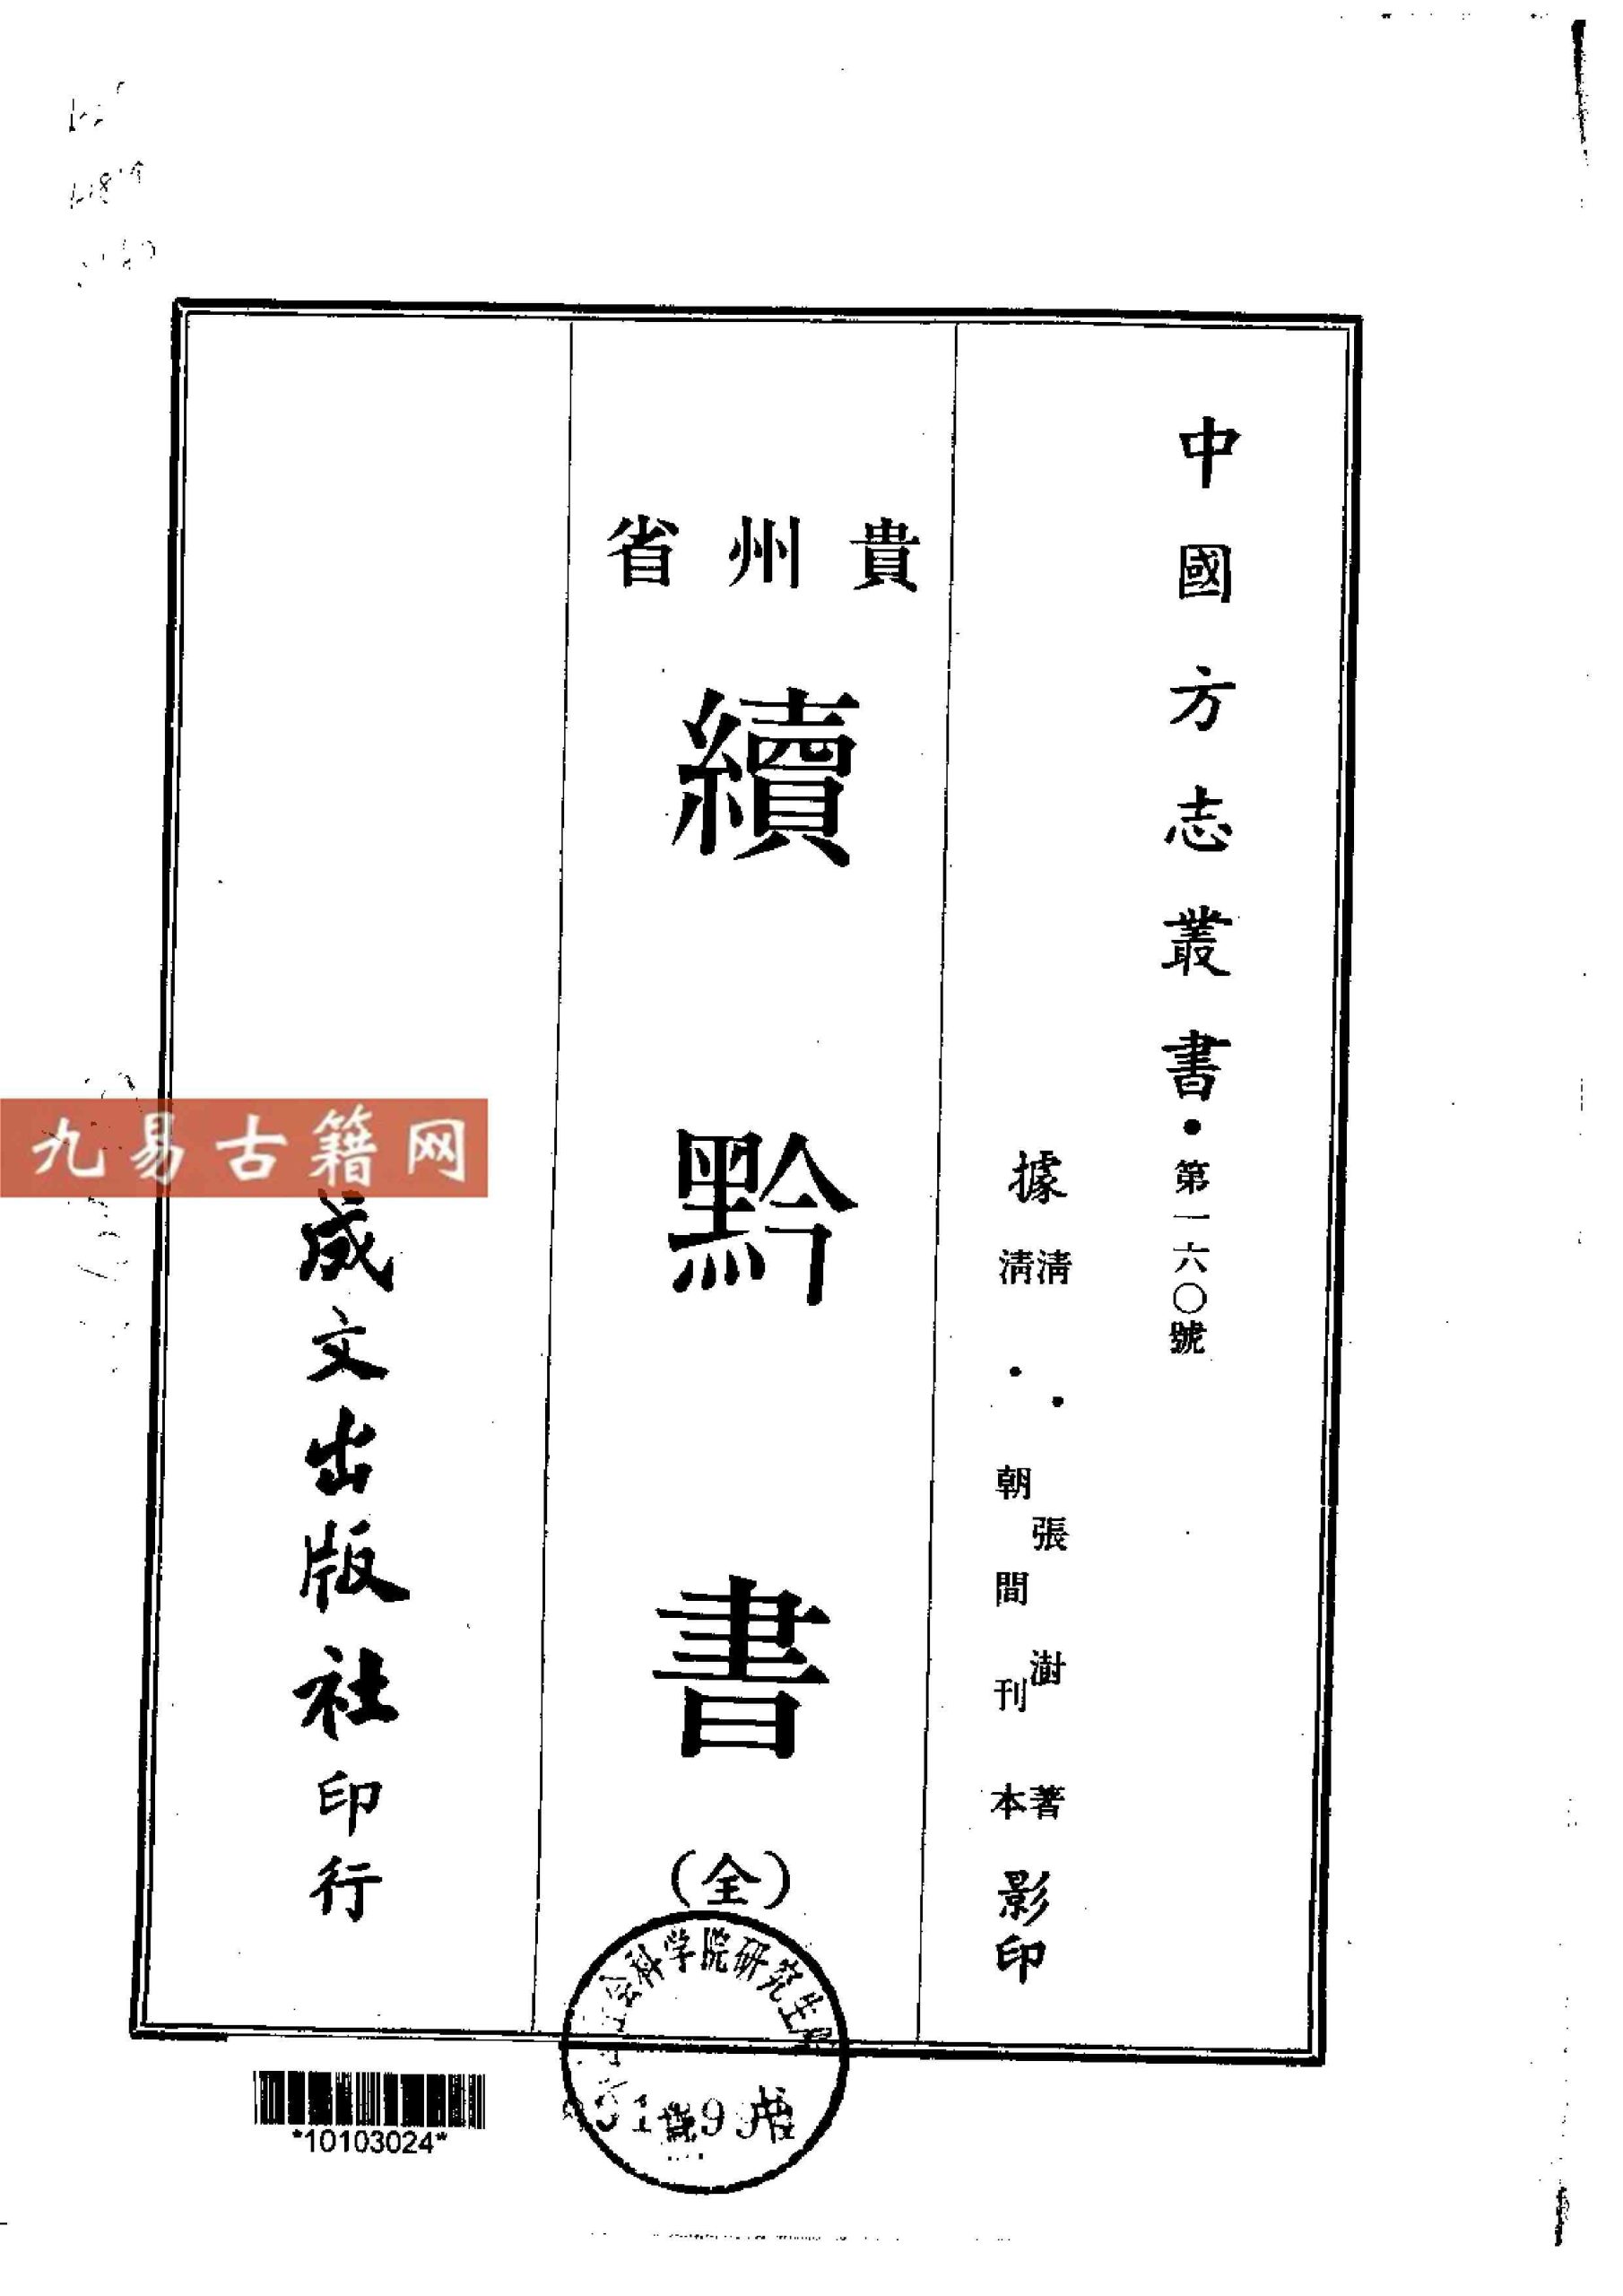 中國方志叢書・第一六〇號
據
清・張澍著
清・朝間刊本
影印
貴州省
續黔書
(全)
成文出版社印行
九易古籍网
会科学院研究生
*10103024*